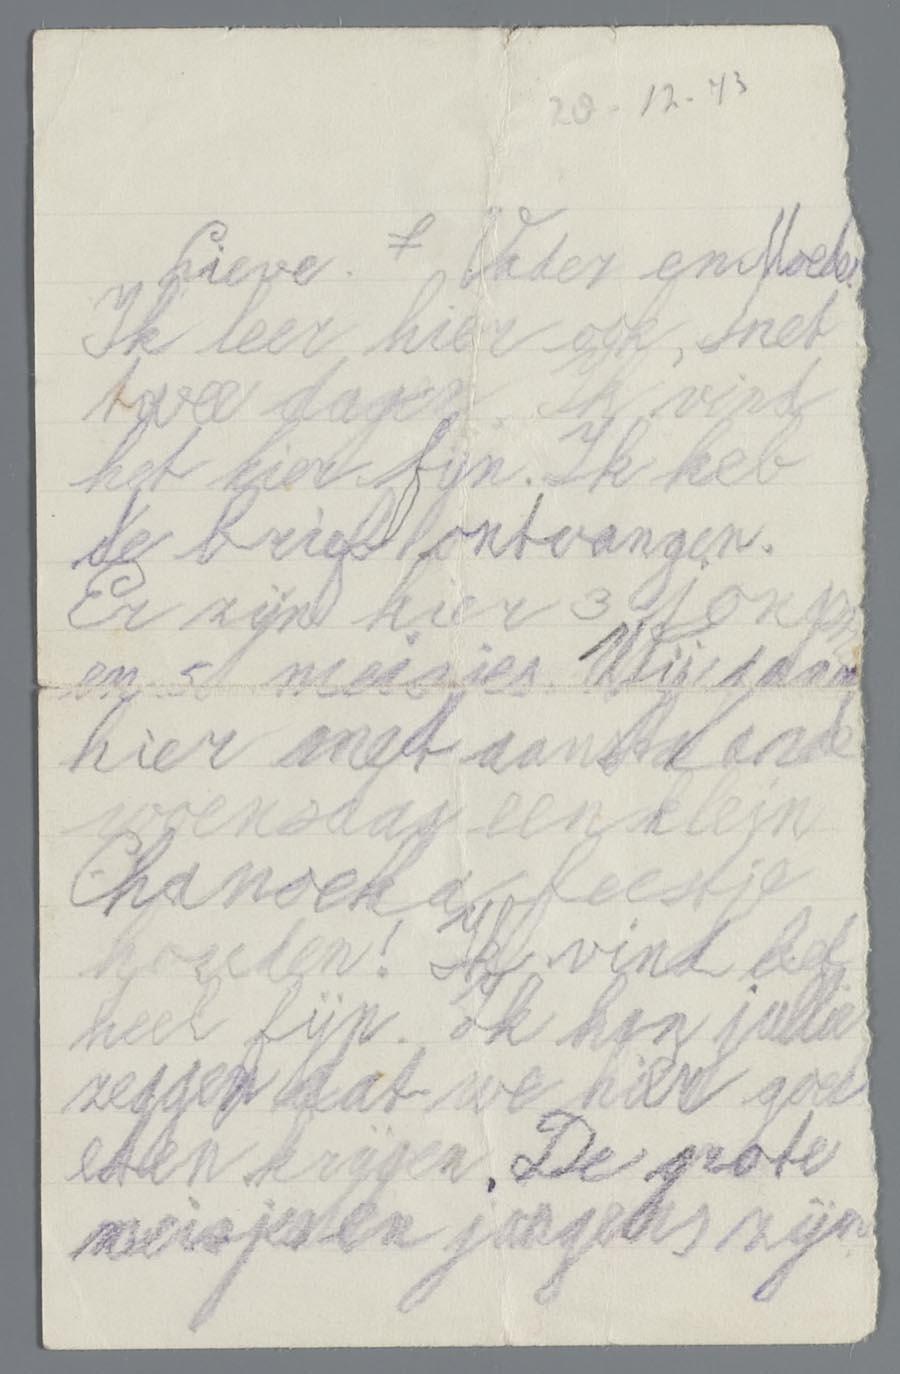 20-12-43
Lieve. Vader en Moeder
Ik leer hier ook, net
twee dagen. Ik vind
het hier fijn. Ik heb
de brief ontvangen.
Er zijn hier 3 jongen
en 5 meisies. Wij gaan
hier met aanstaande
woensdag een klein
Chanoeka feestje
houden! Ik vind het
heel fijn. Ik kan jullie
zeggen dat we hier goed
eten krijgen. De grote
meisjes en jongens zijn